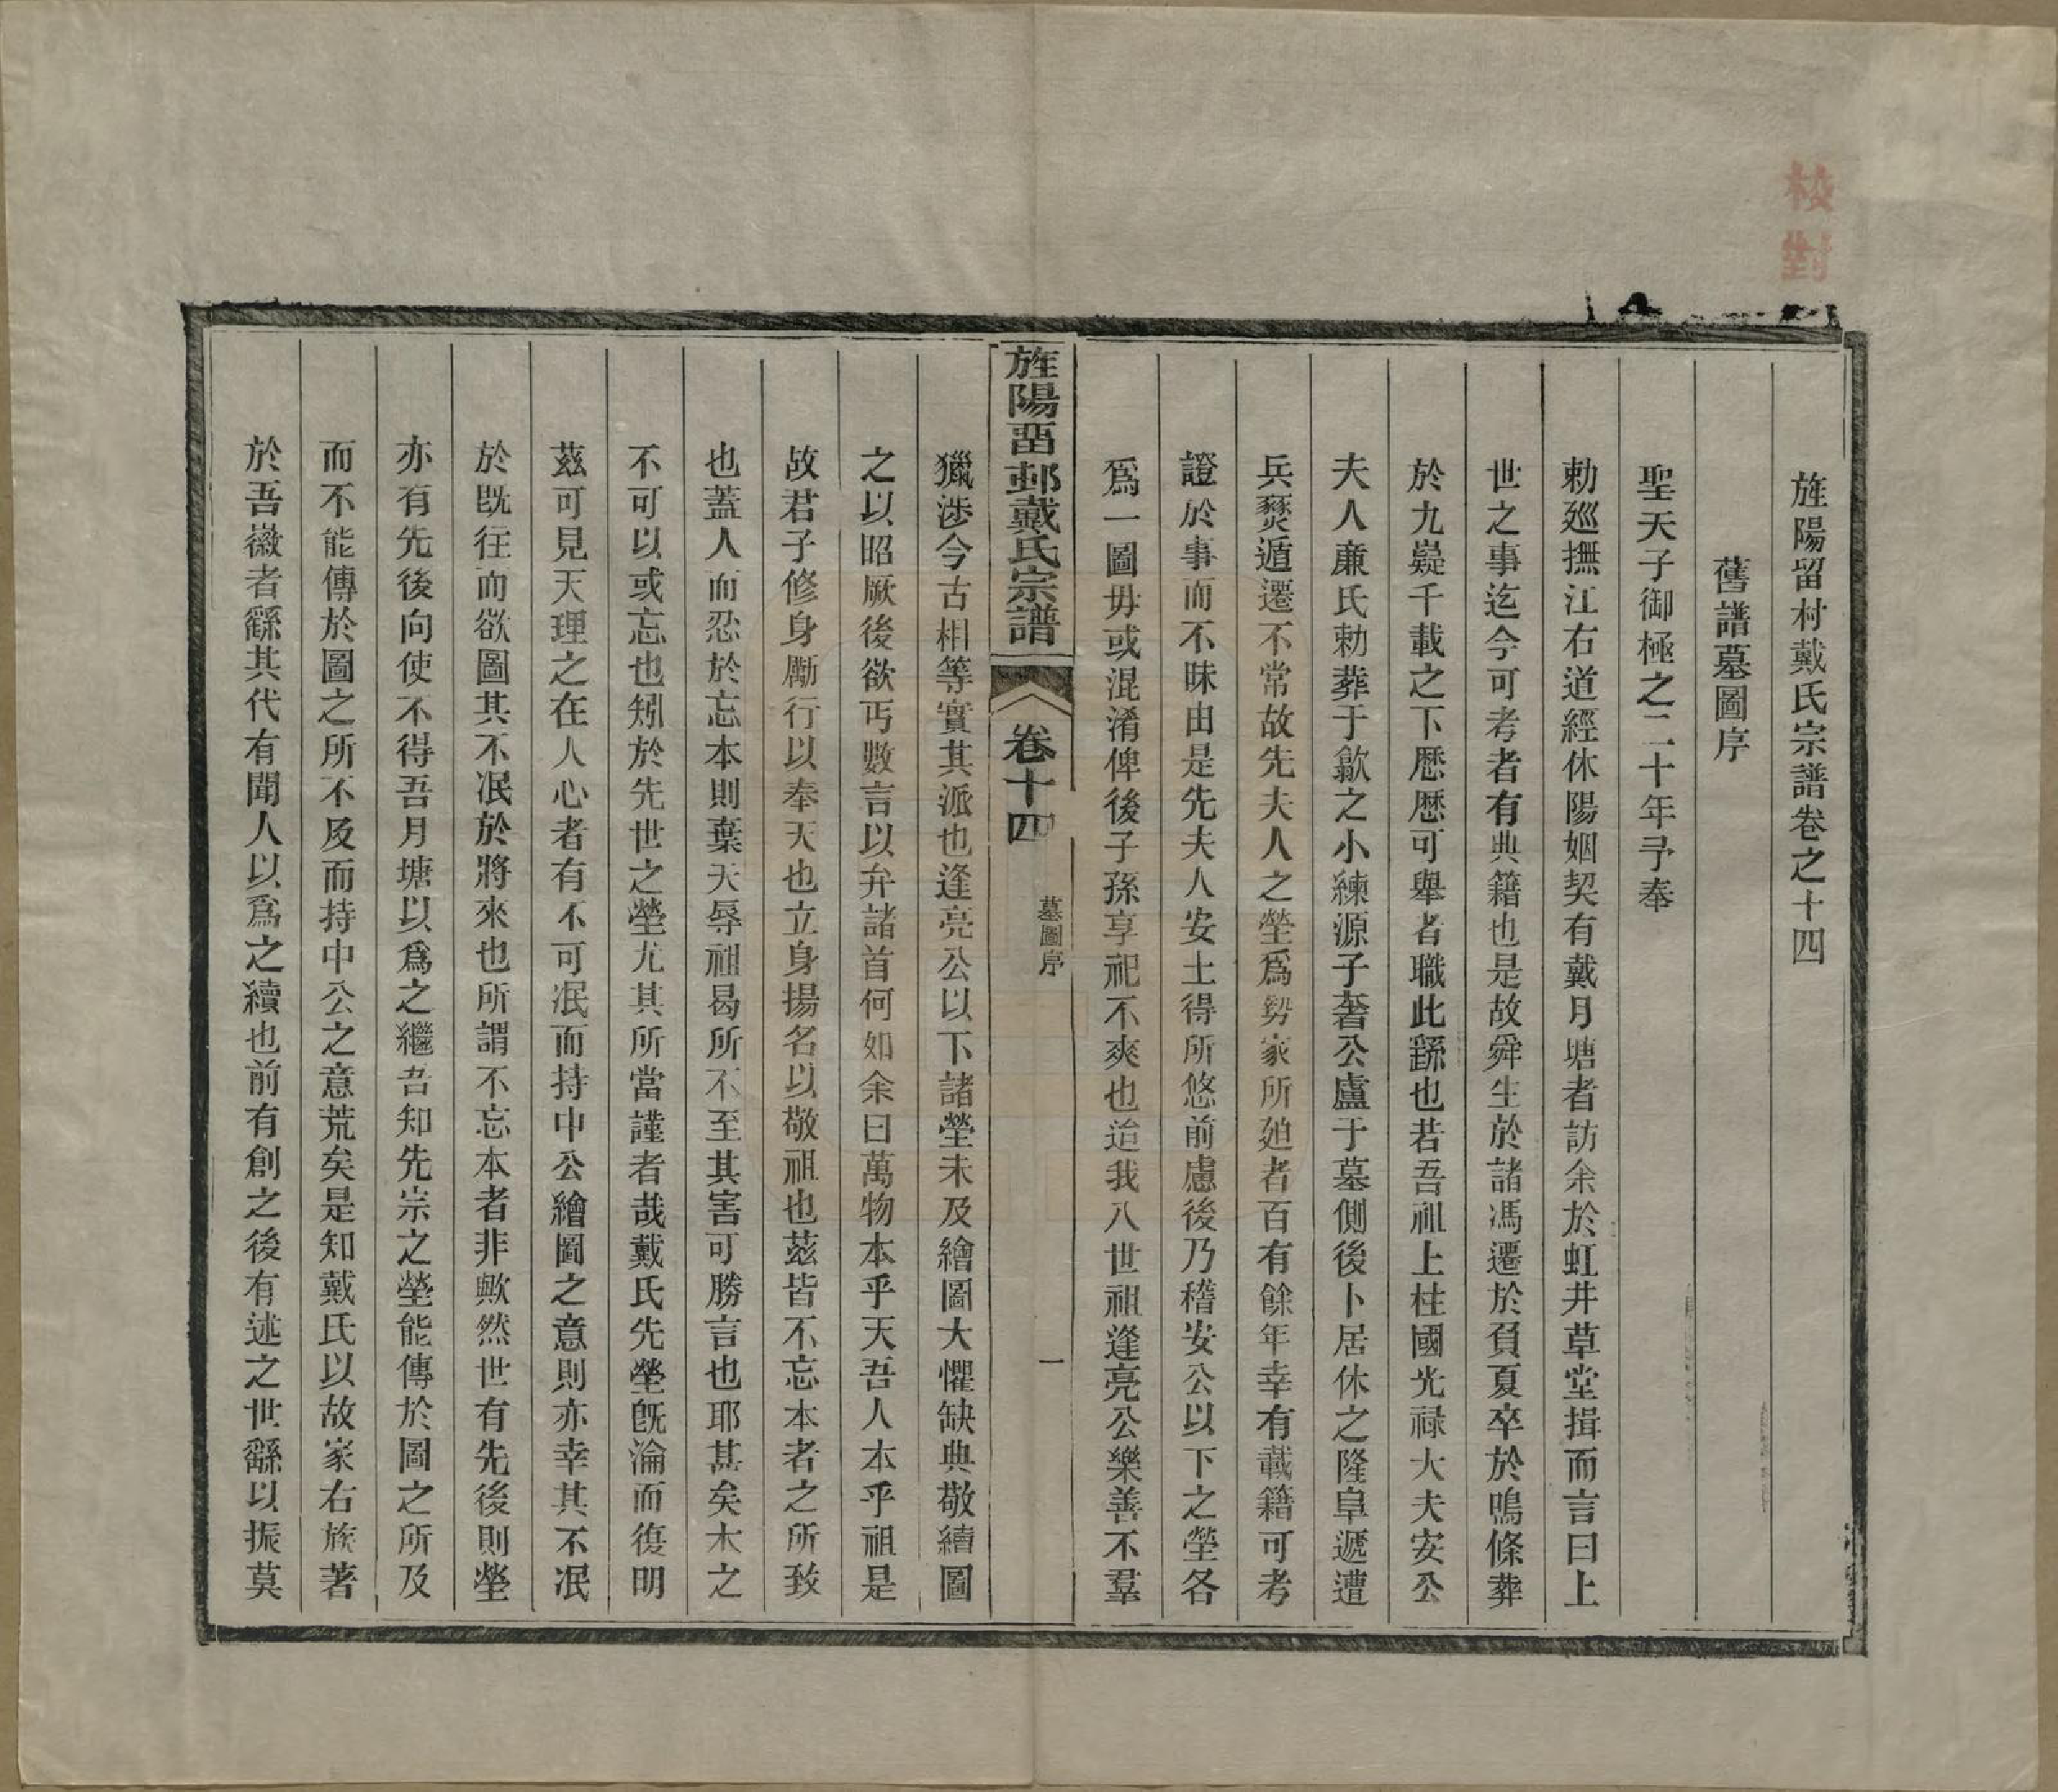 校對
旌陽留村戴氏宗譜卷之十四
舊譜墓圖序
聖天子御極之二十年予奉
勅廵撫江右道經休陽姻契有戴月塘者訪余於虹井草堂揖而言曰上
世之事迄今可考者有典籍也是故舜生於諸馮遷於負夏卒於鳴條葬
於九嶷千載之下歷歷可舉者職此繇也若吾祖上柱國光祿大夫安公
夫人亷氏勅葬于歙之小練源子奢公廬于墓側後卜居休之隆阜遞遭
兵燹遁遷不常故先夫人之塋爲勢家所廹者百有餘年幸有載籍可考
證於事而不昧由是先夫人安土得所悠前慮後乃稽安公以下之塋各
爲一圖毋或混淆俾後子孫享祀不爽也迨我八世祖逢亮公樂善不羣
旌陽畱邨戴氏宗譜
卷十四
墓圖序
一
獵涉今古相等實其派也逢亮公以下諸塋未及繪圖大懼缺典敬續圖
之以昭厥後欲丐數言以弁諸首何如余曰萬物本乎天吾人本乎祖是
故君子修身勵行以奉天也立身揚名以敬祖也茲皆不忘本者之所致
也蓋人而忍於忘本則棄天辱祖曷所不至其害可勝言也耶甚矣木之
不可以或忘也矧於先世之塋尤其所當謹者哉戴氏先塋旣淪而復明
茲可見天理之在人心者有不可泯而持中公繪圖之意則亦幸其不泯
於旣往而欲圖其不泯於將來也所謂不忘本者非歟然世有先後則塋
亦有先後向使不得吾月塘以爲之繼吾知先宗之塋能傳於圖之所及
而不能傳於圖之所不及而持中公之意荒矣是知戴氏以故家右族著
於吾徽者繇其代有聞人以爲之續也前有創之後有述之世繇以振莫